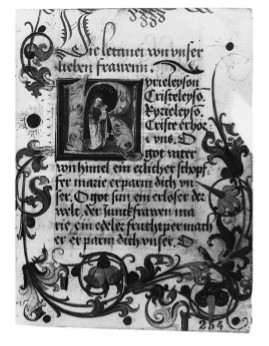 Die letanei von vnser
lieben frawenn.
Kyrieleyson
Cristeleyso.
Kyrieleyso.
Criste erhor
e vns. O
got vater
von himel ein erlicher schopf
fer marie erparm dich vn
ser. O got sun ein erloser der
welt, der junckfrawen ma
rie ein edele fruchtper mach
er er parm dich vnser. O
234